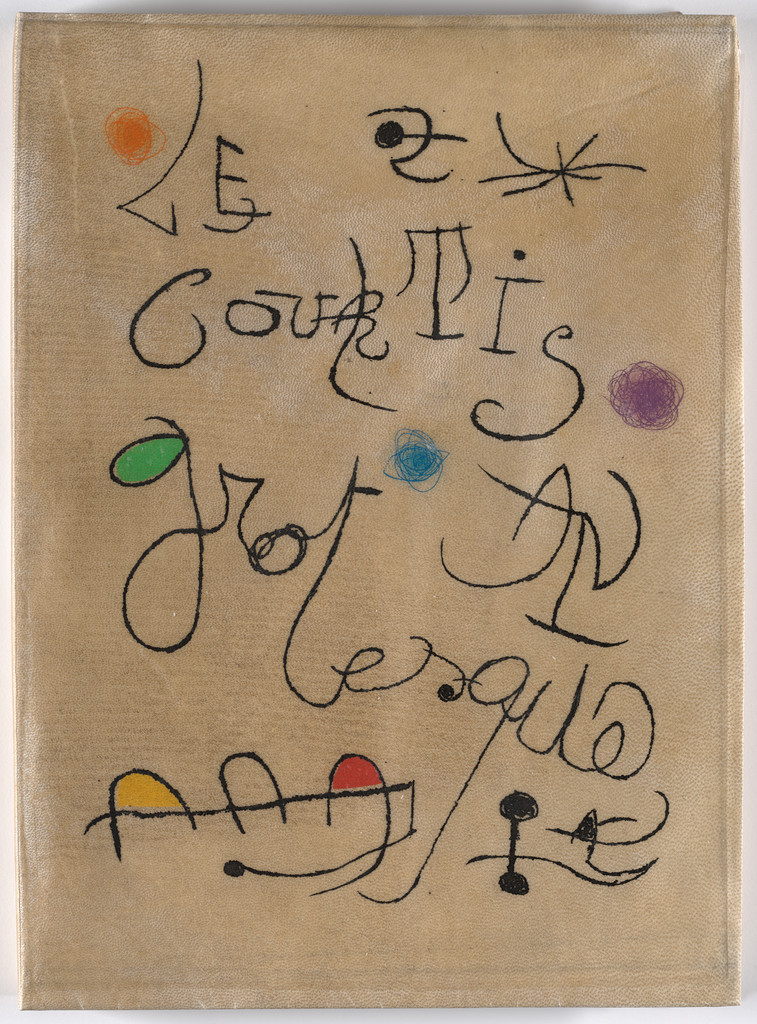 LE
CourTis
grot
esque